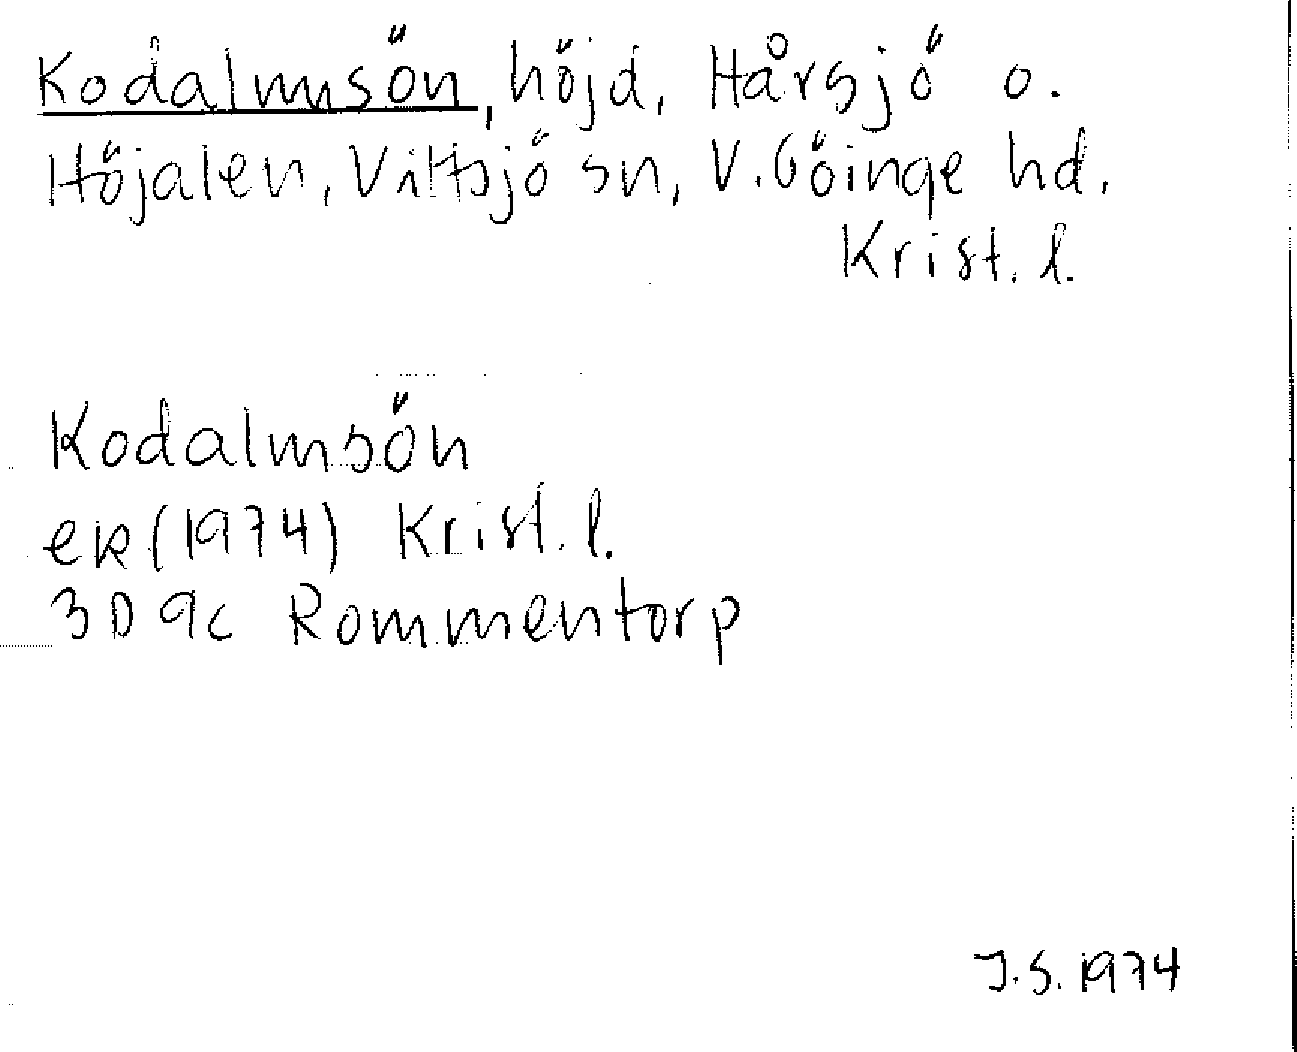 Kodalmsön, höjd, Hårsjö o.
Höjalen, Vittsjö sn, V. Göinge hd.
Krist. l.
Kodalmsön
ek (1974) Krist. l.
3D 9c Rommentorp
J.S. 1974